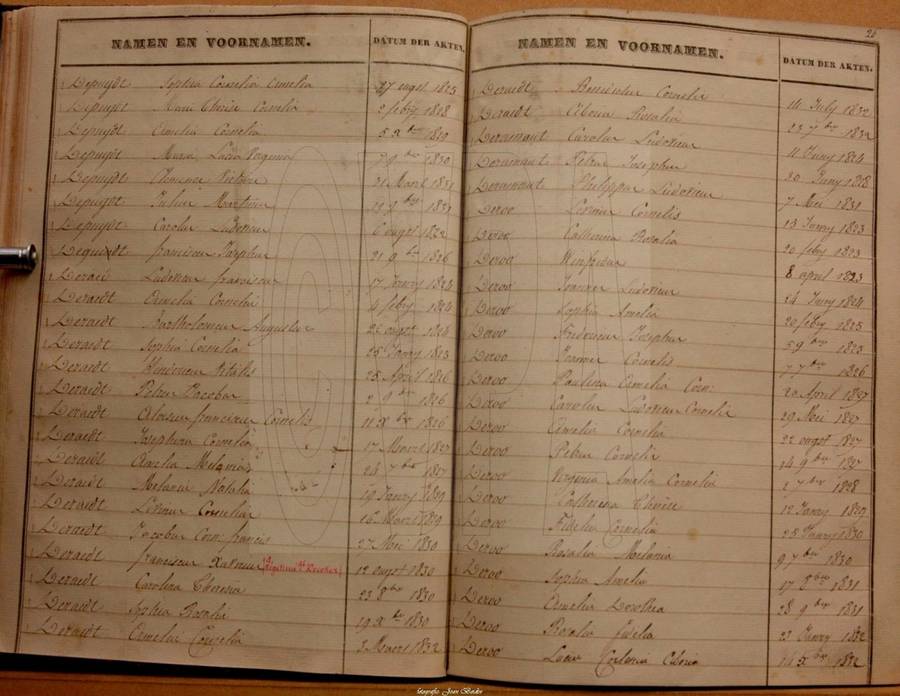 NAMEN EN VOORNAMEN. DATUM DER AKTEN.
Depuydt Sophia Cornelia Amelia 27 augst 1825
Depuydt Marie Thérèse Cornelia 2 febry 1828
Depuydt Amelia Cornelia 5 Xbre 1829
Depuydt Maria Lucia Virginia 7 9bre 1830
Depuydt Clemence Victoire 31 Maart 1831
Depuydt Julius Martinus 1831
Depuydt Carolus Ludovicus 6 augst 1832
Dequidt franciscus Josephus 21 9bre 1826
Deraedt Ludovicus franciscus 17 January 1824
Deraedt Amelia Cornelia 4 febry 1824
Deraedt Bartholomeus Augustus 22 augst 1824
Deraedt Sophia Cornelia 25 Janry 1823
Deraedt Vitalis 25 April 1826
Deraedt Petrus Jacobus 2 9bre 1826
Deraedt franciscus Cornelis 11 Xbre 1826
Deraedt Josephina Cornelia 17 Maart 1827
Deraedt Amelia Melania 24 7bre 1827
Deraedt Melanie Natalia 19 Janry 1829
Deraedt Cornelia 16 Maart 1829
Deraedt Jacobus Corn: francis 27 Mei 1830
Deraedt franciscus Xaverius 12 augst 1830
Deraedt Carolina Theresia 23 8bre 1830
Deraedt Sophia Rosalia 19 Xbre 1830
Deraedt Amelia Cornelia 3 Maart 1832
26
NAMEN EN VOORNAMEN. DATUM DER AKTEN.
Deraedt Benedictus Cornelis 14 July 1832
Deraedt Rosalia 23 7bre 1832
Deramaut Carolus Ludovicus 11 Juny 1824
Deramaut Petrus Josephus 30 Juny 1828
Deramaut Philippus Ludovicus 7 Mei 1831
Deroo Cornelis 13 Janry 1823
Deroo Catherina Rosalia 20 febry 1823
Deroo 8 april 1823
Deroo Ludovicus 24 Juny 1824
Deroo Sophia Amelia 20 febry 1825
Deroo Josephus 5 9bre 1825
Deroo Cornelis 7 7bre 1826
Deroo Paulina Amelia Corn: 20 April 1827
Deroo Carolus Ludovicus Cornelis 29 Mei 1827
Deroo Amelia Cornelia 22 augst 1827
Deroo Petrus Cornelis 14 9bre 1827
Deroo Virginia Amelia Cornelia 2 7bre 1828
Deroo Catherina Thérèse 12 Janry 1829
Deroo Cornelia 25 Janry 1830
Deroo Rosalia Melania 9 7bre 1830
Deroo Sophia Amelia 17 8bre 1831
Deroo Amelia Dorothea 28 9bre 1831
Deroo Rosalia fidelia 23 Janry 1832
Deroo 14 Xbre 1832